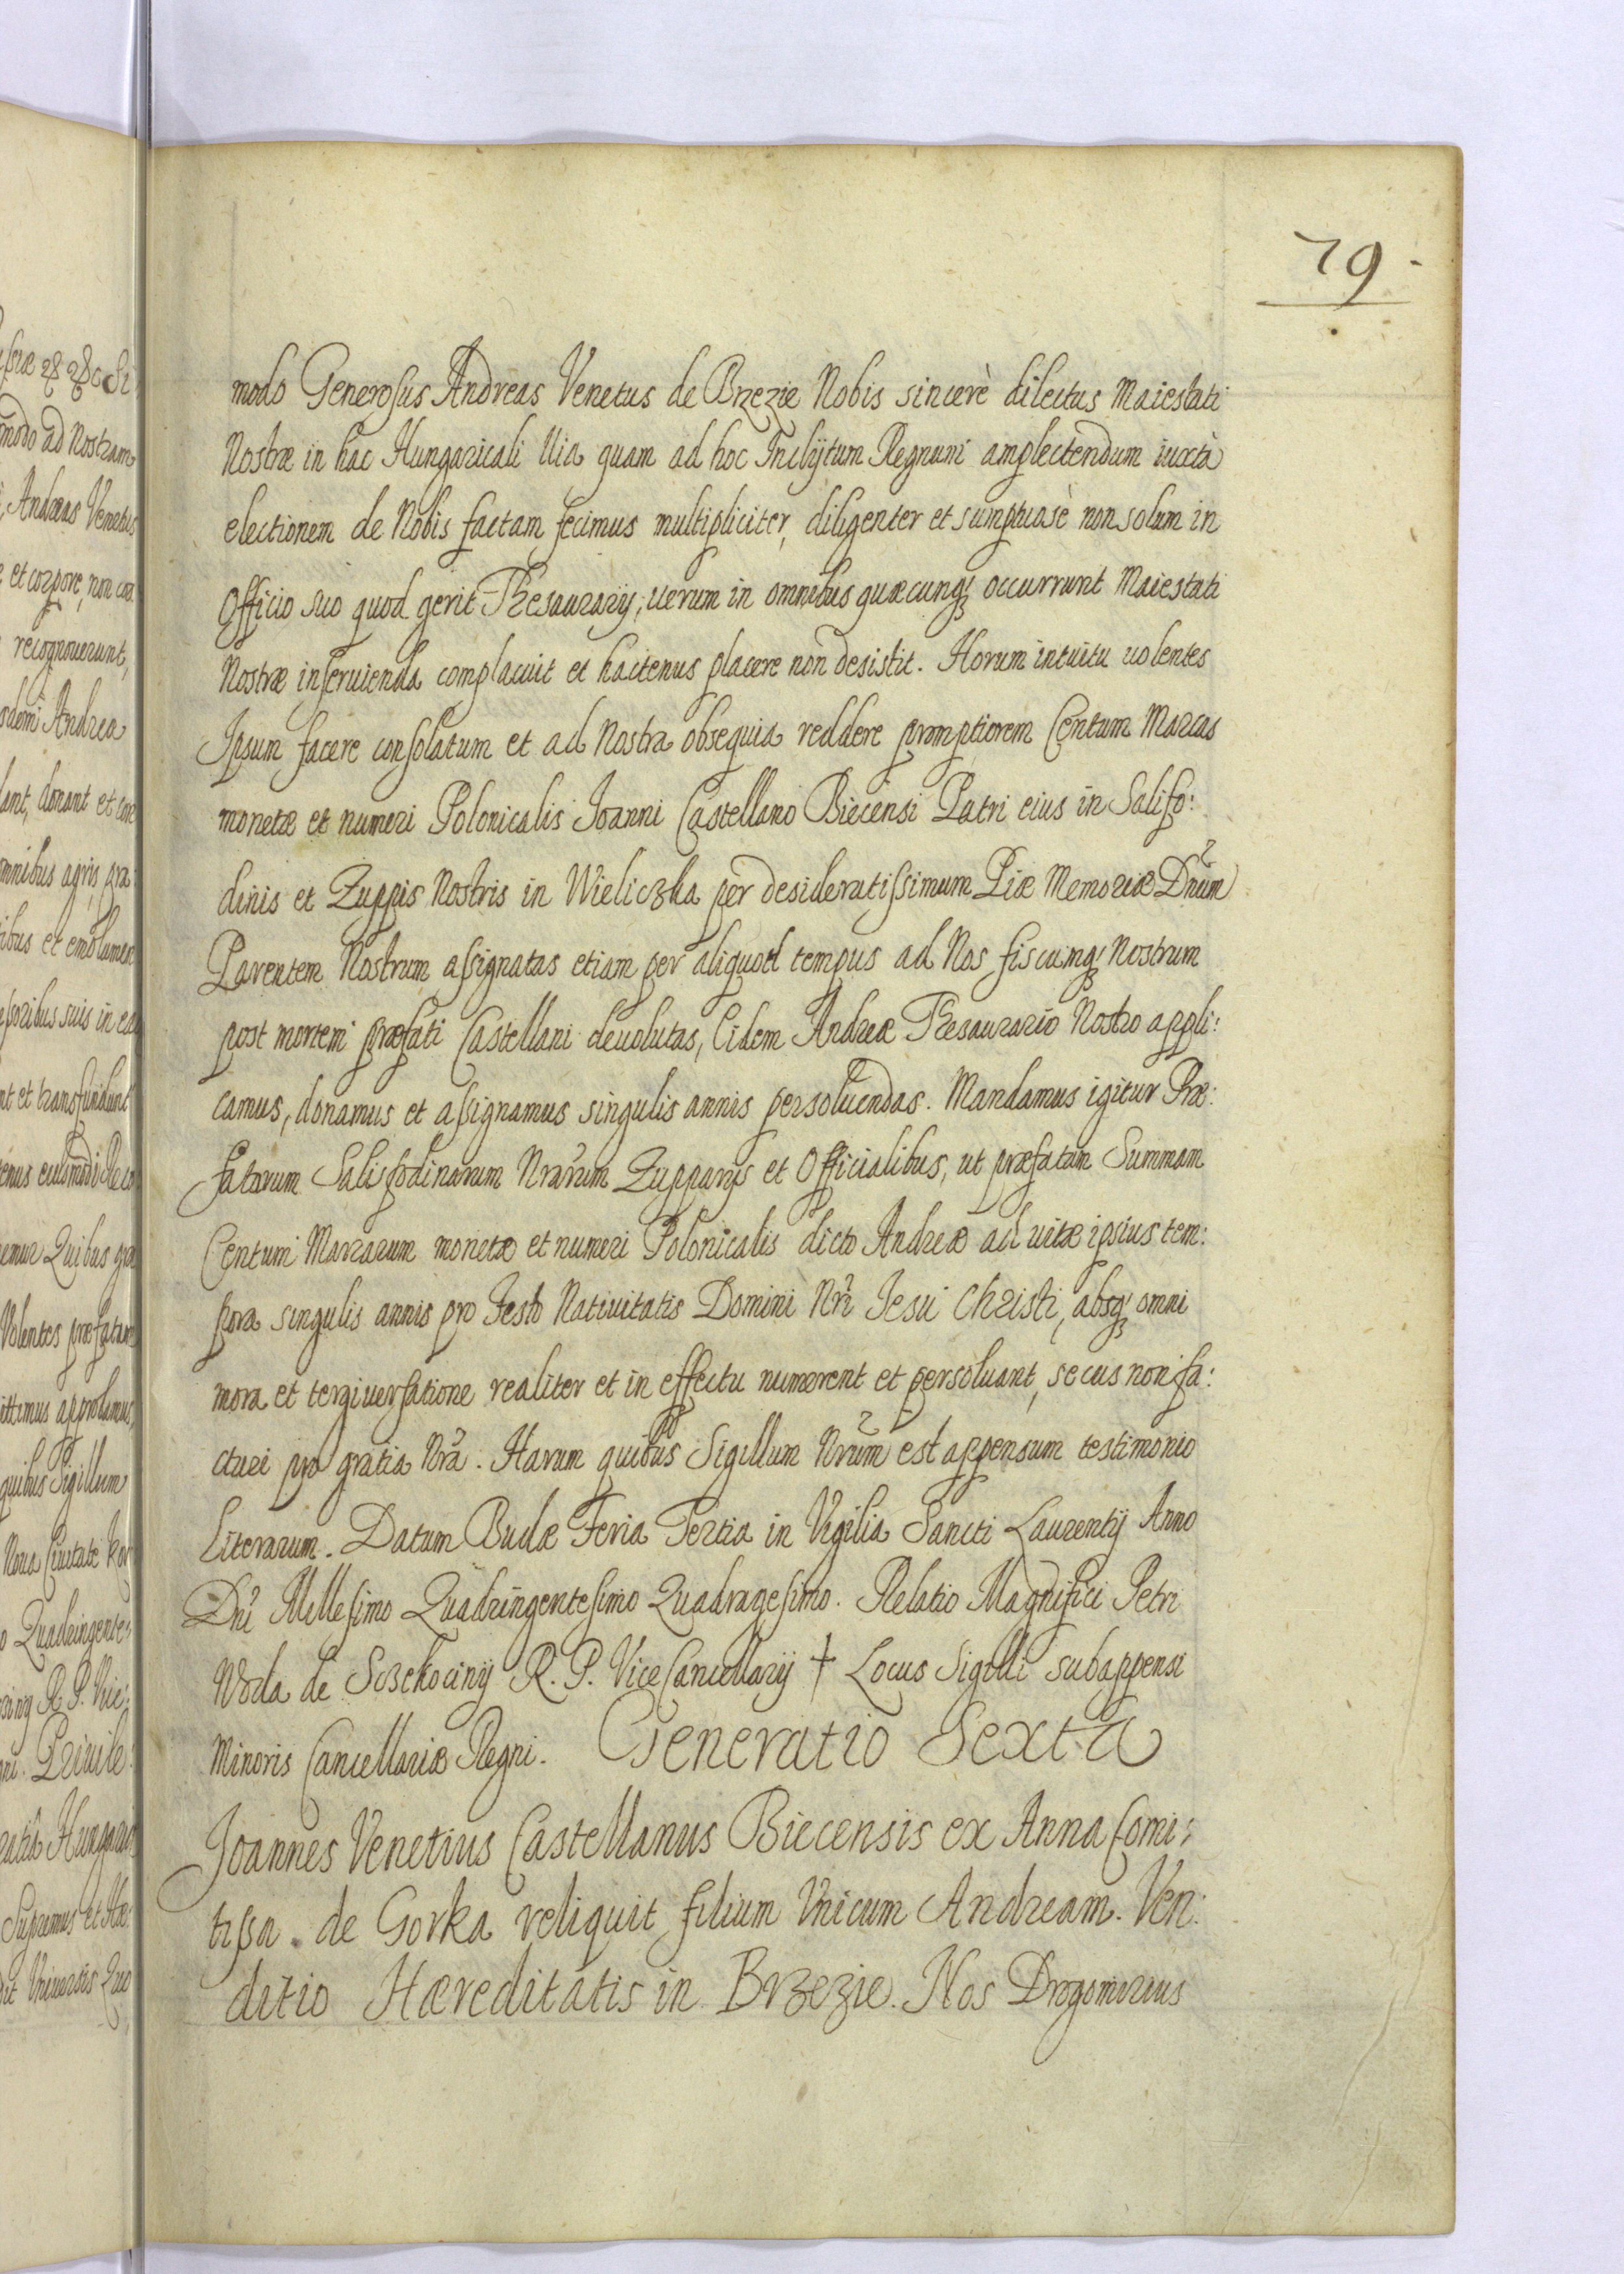 79.
modo Generosus Andreas Venetus de Brzezie Nobis sincerè dilectus Maiestati
Nostræ in hac Hungaricali Uia quam ad hoc Inclytum Regnum amplectendum iuxtà
electionem de Nobis factam fecimus multipliciter, diligenter et sumptuosè non solum in
Officio suo quod gerit Thesaurarij, uerum in omnibus quæcunq; occurrunt Maiestati
Nostræ inseruienda complacuit et hactenus placere non desistit. Horum intuitu uolentes
Ipsum facere consolatum et ad Nostra obsequia reddere promptiorem Centum Marcas
monetæ et numeri Polonicalis Joanni Castellano Biecensi Patri eius in Salifo:
dinis et Zuppis Nostris in Wieliczka per desideratissimum Piæ Memoriæ Dnum
Parentem Nostrum assignatas etiam per aliquod tempus ad Nos fiscumq; Nostrum
post mortem præfati Castellani deuolutas, Eidem Andreæ Thesaurario Nostro appli:
camus, donamus et assignamus singulis annis persoluendas. Mandamus igitur Præ:
fatarum Salisfodinarum Nrarum Zupparijs et Officialibus, ut præfatam Summam
Centum Marcarum monetæ et numeri Polonicalis dicto Andreæ ad uitæ ipsius tem:
pora singulis annis pro Festo Natiuitatis Domini Nri Jesu Christi, absq; omni
mora et tergiuersatione realiter et in effectu numerent et persoluant, secus non fa:
cturi pro gratia Nra. Harum quibus Sigillum Nrum est appensum testimonio
Literarum. Datum Budæ Feria Tertia in Vigilia Sancti Laurentij Anno
Dni Millesimo Quadringentesimo Quadragesimo. Relatio Magnifici Petri
Woda de Sczekociny R. P. ViceCancellarij † Locus Sigilli subappensi
Minoris Cancellariæ Regni. Generatio Sexta
Joannes Venetius Castellanus Biecensis ex Anna Comi:
tissa. de Gorka reliquit filium Vnicum Andream. Ven:
ditio Hæreditatis in Brzezie. Nos Drogomirius